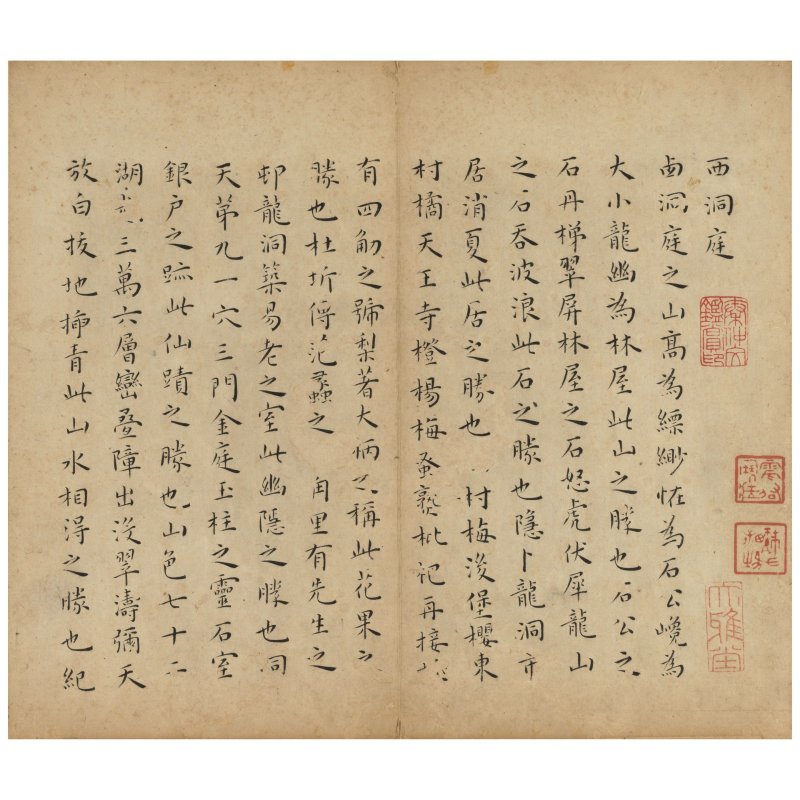 西洞庭
西洞庭之山高為縹緲怪為石公巉為
大小龍幽為林屋此山之勝也石公之
石丹梯翠屏林屋之石怒虎伏犀龍山
之石吞波浪此石之勝也隱卜龍洞市
居消夏此居之勝也村梅後堡櫻東
村橘天王寺橙楊梅蚤熟枇杷再接
有四勣之號梨著大柄之稱此花果之
勝也杜圻傳范蠡之角里有先生之
邨龍洞築易老之室此幽隱之勝也洞
天第九一穴三門金庭玉柱之靈石室
銀戶之跡此仙蹟之勝也山色七十二
湖光三萬六層巒疊障出沒翠濤彌天
放白拔地插青此山水相得之勝也紀